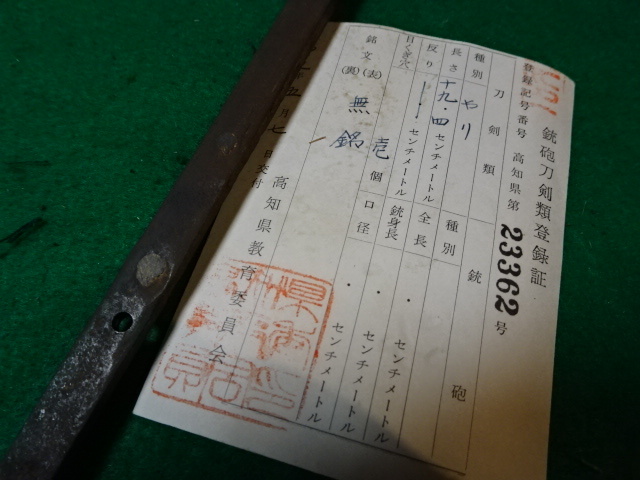 銃砲刀剣類登録証
登録記号番号 高知県第 23362 号
刀剣類 銃砲
種別 やり 種別
長さ 十九・四 センチメートル 全長 ・ センチメートル
反り ・ センチメートル 銃身長 ・ センチメートル
目くぎ穴 壱個 口径 ・ センチメートル
銘文 (表) 無銘
(裏)
月七日交付
高知県教育委員会